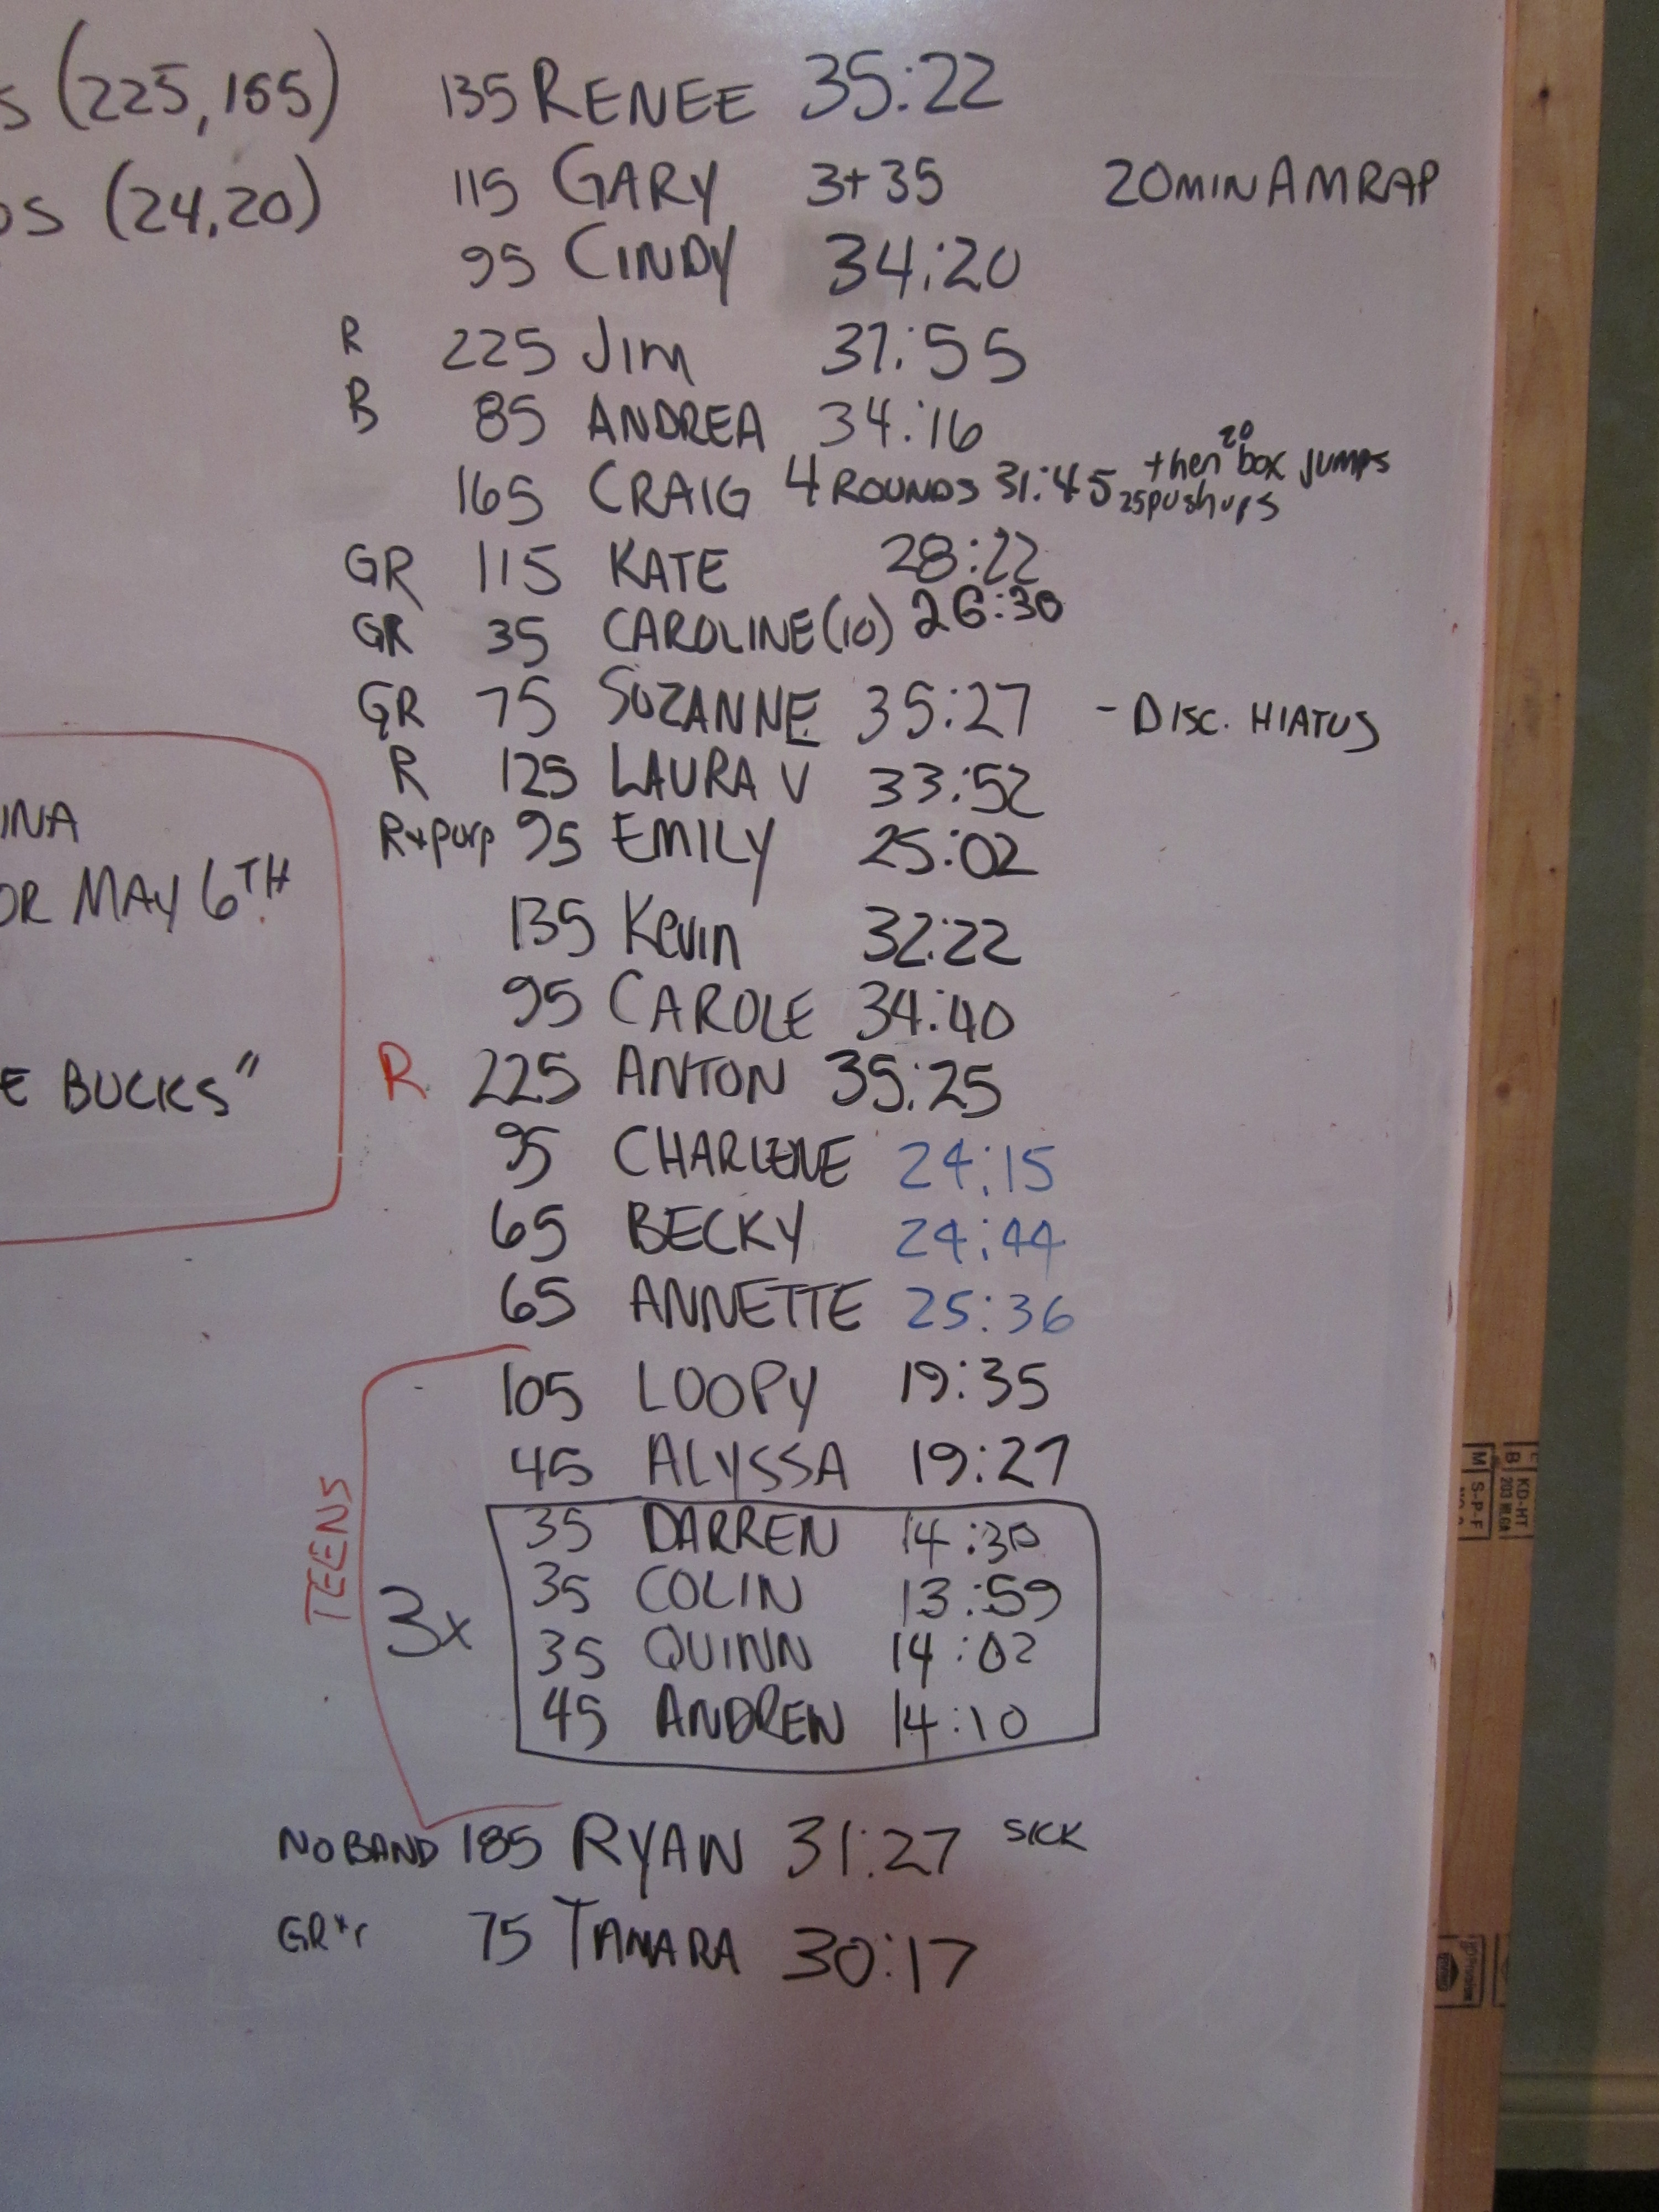 s (225,155)
(24,20)
135 RENEE 35:22
115 GARY 3+35 20MIN AMRAP
95 CINDY 34:20
R 225 JIM 37:55
B 85 ANDREA 34:16
165 CRAIG 4 ROUNDS 31:45 then 20 box jumps
25pushups
GR 115 KATE 28:22
GR 35 CAROLINE(10) 26:30
GR 75 SUZANNE 35:27 - DISC. HIATUS
R 125 LAURA V 33:52
R+purp 95 EMILY 25:02
135 Kevin 32:22
95 CAROLE 34:40
R 225 ANTON 35:25
95 CHARLENE 24:15
65 BECKY 24:44
65 ANNETTE 25:36
INA
OR MAY 6TH
E BUCKS"
TEENS
105 LOOPY 19:35
45 ALYSSA 19:27
3x
35 DARREN 14:30
35 COLIN 13:59
35 QUINN 14:02
45 ANDREW 14:10
NO BAND 185 RYAN 31:27 SICK
GR+r 75 TAMARA 30:17
KD-HT
S-P-F